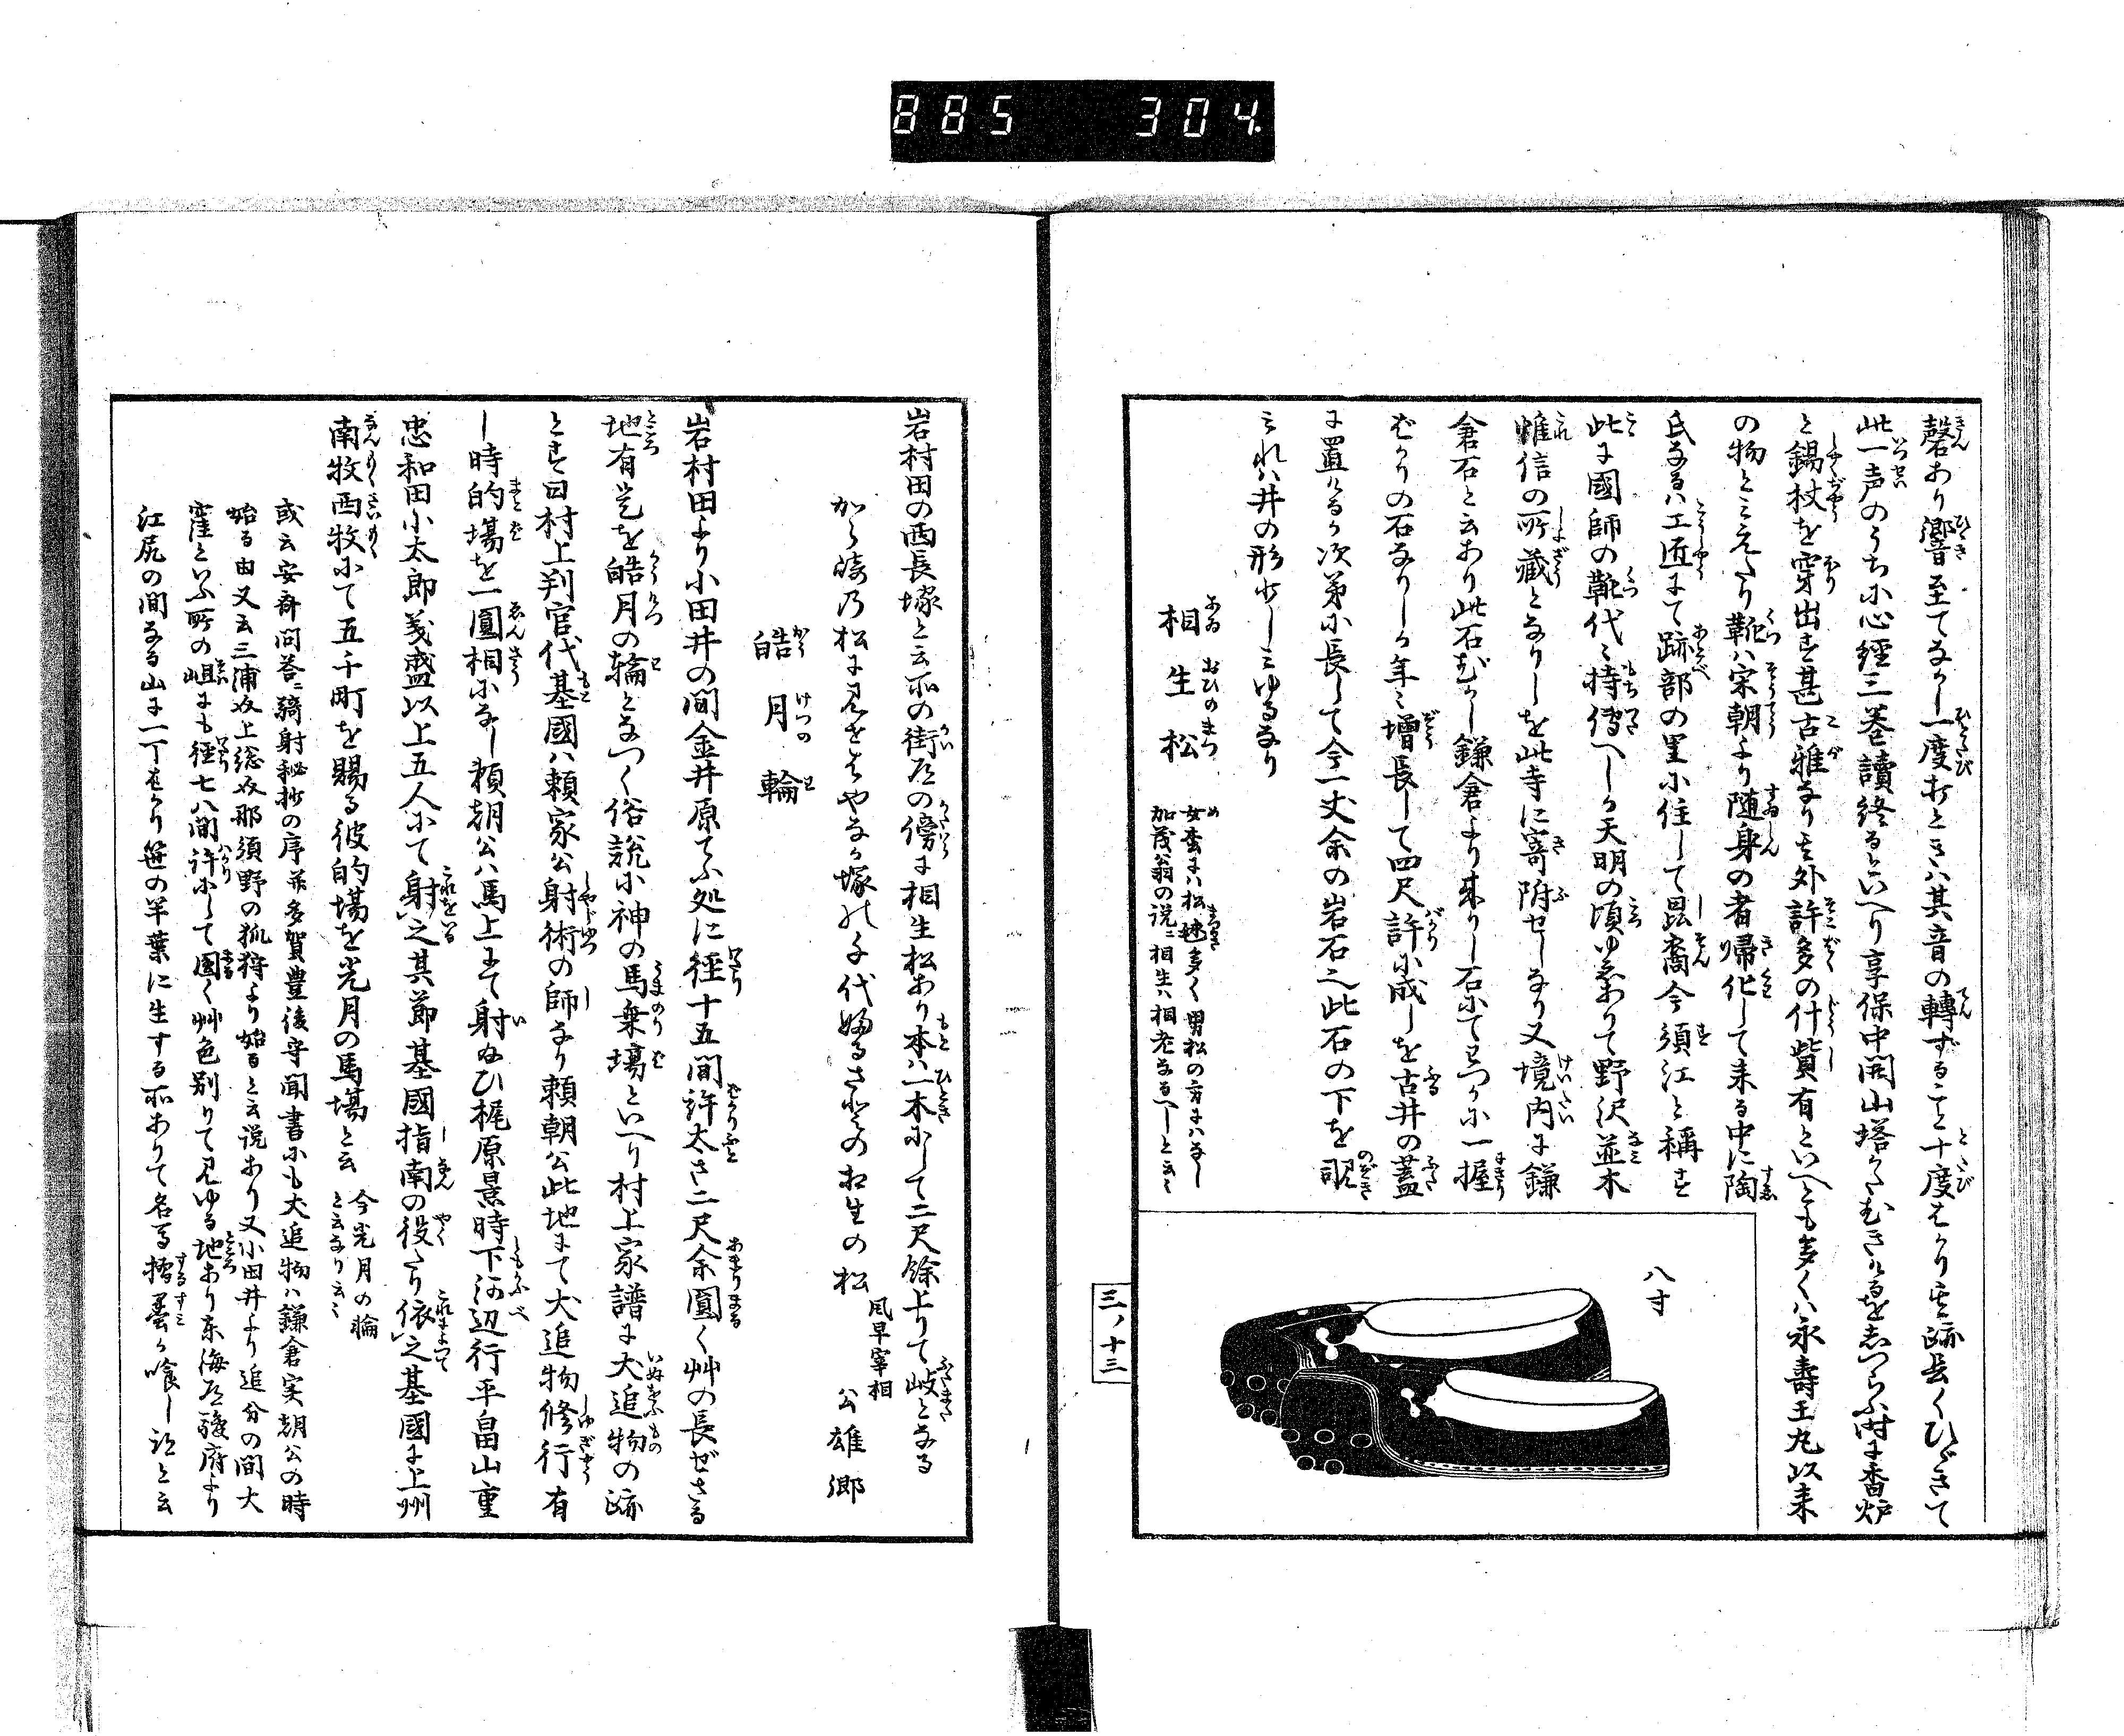 885 304.
磬あり響至てながし一度打ときハ其音の轉ずること十度ばかり其跡長くひゞきて
此一声のうちに心經三巻讀終るといへり享保中開山塔かたむきけるをしつらふ時に香炉
と錫杖を穿出す甚古雅なり其外許多の什貲有といへども多くハ永壽王丸以来
の物とミえたり靴ハ宋朝より随身の者歸化して来る中に陶
氏なるハ工匠にて跡部の里に住して昆裔今須江と稱す
此に國師の靴代々持傳へしが天明の頃ゆゑありて野沢並木
惟信の所藏となりしを此寺に寄附せしなり又境内に鎌
倉石と云あり此石むかし鎌倉より来りし石にてわづかに一握
ばかりの石なりしが年々增長して四尺許に成しを古井の蓋
に置けるが次第に長して今一丈余の岩石也此石の下を覗
ミれハ井の形少しミゆるなり
相生松
女松にハ松毬多く男松の方にハなし
加茂翁の説ニ相生ハ相老なるべしと云々
八寸
三ノ十三
岩村田の西長塚と云所の街道の傍に相生松あり本ハ一木にして二尺餘上りて岐となる
から崎乃松に見せばやなが塚の千代ふるさとの相生の松
風早宰相
公雄卿
皓月輪
岩村田より小田井の間金井原てふ処に径十五間許太さ二尺余圓く艸の長ぜざる
地有是を皓月の輪となづく俗説に神の馬乗場といへり村上家譜に犬追物の跡
とす曰村上判官代基國ハ頼家公射術の師なり頼朝公此地にて犬追物修行有
し時的場を一圓相になし頼朝公ハ馬上にて射給ひ梶原景時下河辺行平畠山重
忠和田小太郎義盛以上五人にて射之其節基國指南の役たり依之基國に上州
南牧西牧にて五千町を賜る彼的場を光月の馬場と云
今光月の輪
と云なり云々
或云安斎问答ニ騎射秘抄の序并多賀豊後守聞書にも犬追物ハ鎌倉実朝公の時
始る由又云三浦介上総介那須野の狐狩より始ると云说あり又小田井より追分の間大
窪といふ所の岨にも径七八間許にして圓く艸色别りて見ゆる地あり东海道駿府より
江尻の间なる山に一丁ばかり笹の半葉に生する所ありて名る摺墨が喰し跡と云